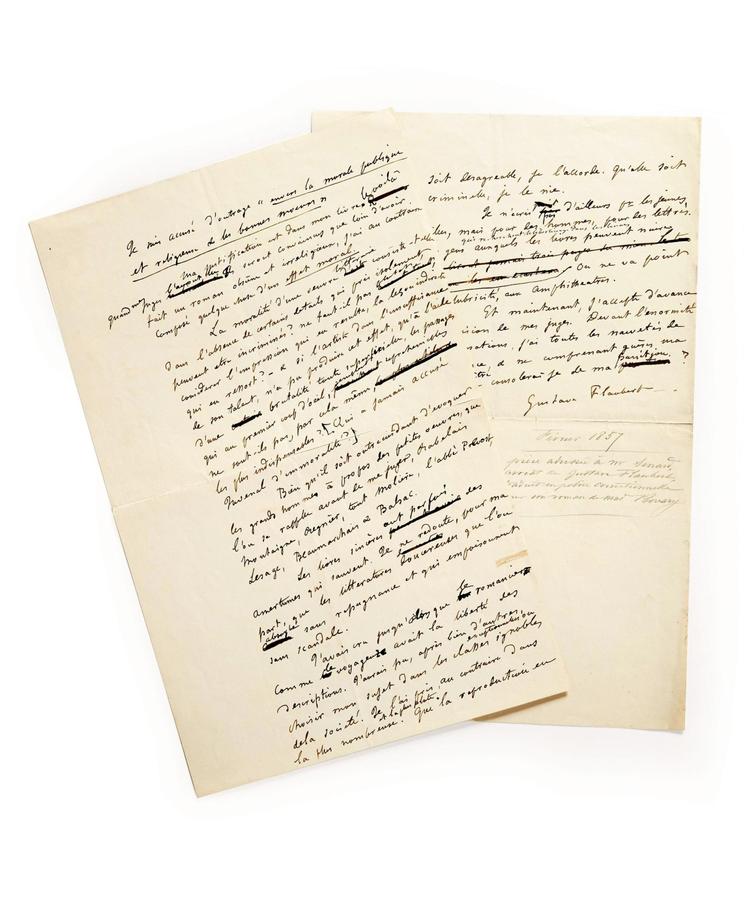 Je suis accusé d'outrage « envers la morale publique
et religieuse & les bonnes moeurs »
Ma justification est dans mon livre. Le voilà
quand mes juges l'auront lu, seront convaincus que loin d'avoir
fait un roman obscène et irreligieux, j'ai au contraire
composé quelque chose d'un effet moral.
La moralité d'une oeuvre littéraire consiste-t-elle
dans l'absence de certains détails qui pris isolement
peuvent etre incriminés? ne faut-il pas
considérer l'impression qui en resulte, la leçon indirecte
qui en ressort? – & si l'artiste dans l'insuffisance
de son talent, n'a pu produire cet effet, qu'à l'aide
d'une brutalité toute superficielle, les passages
qui au premier coup d'oeil, reprehensibles
ne sont-ils pas, par cela même,
les plus indispensables? [Qui a jamais accusé
Juvénal d'immoralité?]
Bien qu'il soit outrecuidant d'evoquer
les grands hommes à propos des petites oeuvres, que
l'on se rappelle avant de me juger, Rabelais
Montaigne, Regnier, tout Molière, l'abbé Prévost,
Lesage, Beaumarchais & Balzac.
Les livres sincères ont parfois des
amertumes qui sauvent. Je ne redoute, pour ma
part, que les littératures doucereuses que l'on
absorbe sans repugnance et qui empoisonnent
sans scandale.
J'avais cru jusqu'alors que le romancier
comme le voyageur avait la liberté des
descriptions. J'aurais pu, après bien d'autres
choisir mon sujet dans les classes exceptionnelles ou ignobles
de la société. Je l'ai pris, au contraire dans
la plus nombreuse et la plus plate. Que la reproduction en
soit desagreable, je l'accorde. Qu'elle soit
criminelle, je le nie.
Je n'écris pas d'ailleurs pr les jeunes
filles, mais pour des hommes, pour les lettrés.
gens auxquels les livres peuvent nuire
On ne va point
lubricité, aux Amphitheatres.
Et maintenant, j'accepte d'avance
la décision de mes juges. Devant l'enormité
j'ai toutes les naïvetés de
& ne comprenant guères, ma
consolerai-je de ma ?
Gustave Flaubert
Février 1857
adressée à Mr Senard,
de Gustave Flaubert,
traduit en police correctionnelle
son roman de Mad Bovary